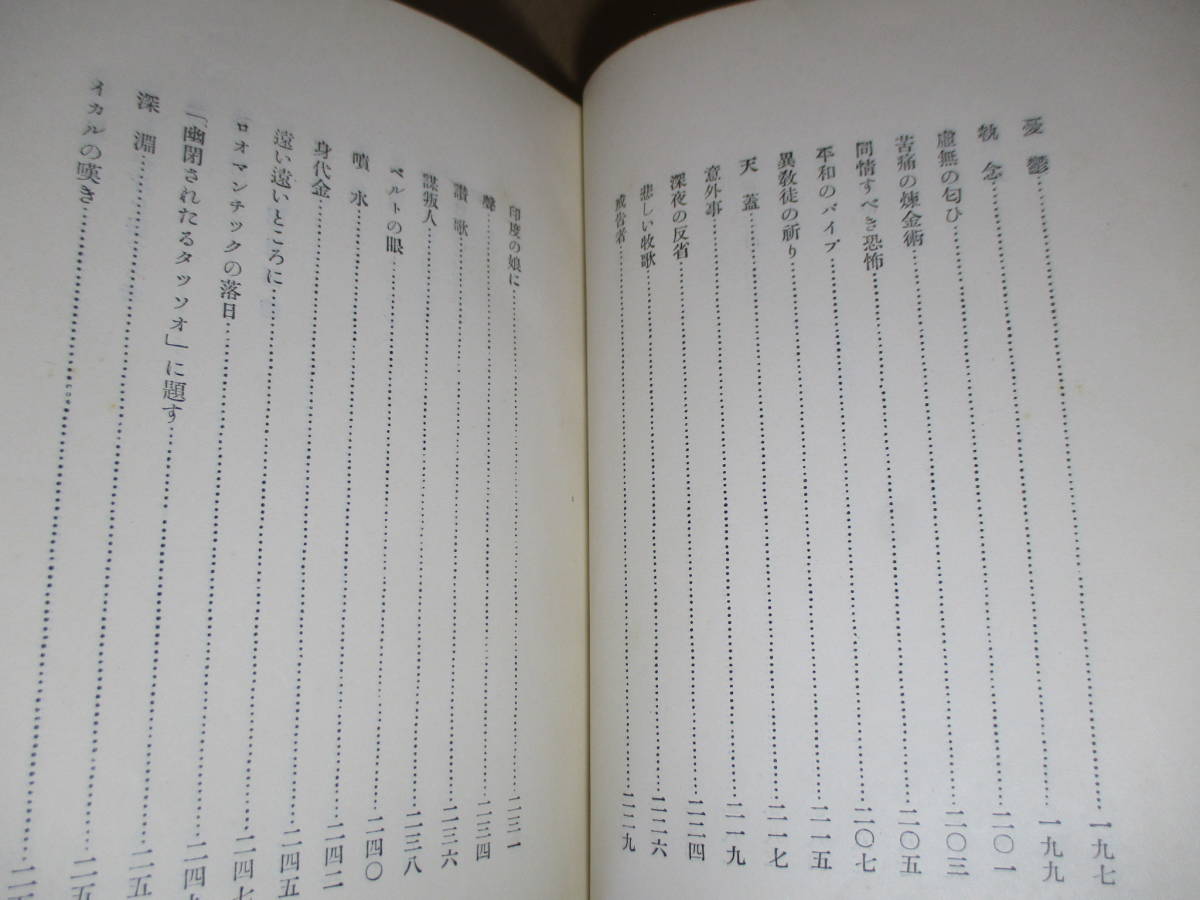 憂鬱……一九七
執念……一九九
虛無の匂ひ……二〇一
苦痛の煉金術……二〇三
同情すべき恐怖……二〇五
平和のパイプ……二〇七
異敎徒の祈り……二一五
天蓋……二一七
意外事……二一九
深夜の反省……二二四
悲しい牧歌……二二六
戒吿者……二二九
印度の娘に……二三一
聲……二三四
讃歌……二三六
謀叛人……二三八
ベルトの眼……二四〇
噴水……二四二
身代金……二四五
遠い遠いところに……二四七
ロオマンチックの落日……二四九
「幽閉されたるタッソオ」に題す……二五
深淵……二五
イカルの嘆き……二五